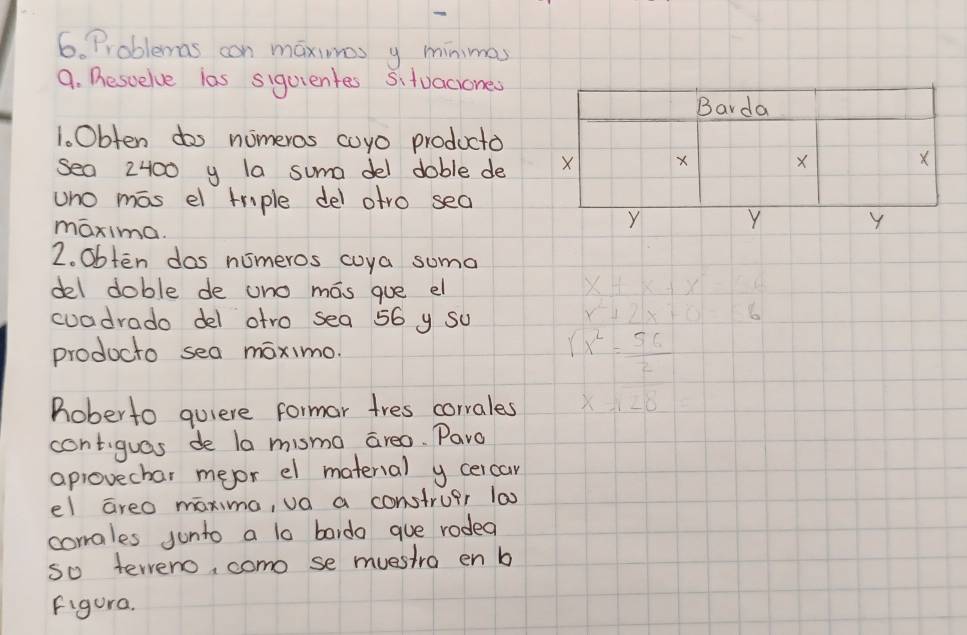 6. Problemas con máximos y mínimos
a. Resuelve las siguientes situaciones
1. Obten dos números cuyo producto
sea 2400 y la suma del doble de
uno más el triple del otro sea
máxima.
2. Obtén dos números cuya suma
del doble de uno más que el
cuadrado del otro sea 56 y su
producto sea máximo.
Roberto quiere formar tres corrales
contiguas de la misma área. Para
aprovechar mejor el material y cercar
el área máxima, va a construir las
corrales junto a la barda que rodea
su terreno, como se muestra en
figura.
Barda
x x x x
y y y
x + x + x
x² + 2x + 0 = 56
x² = 56/2
x 28